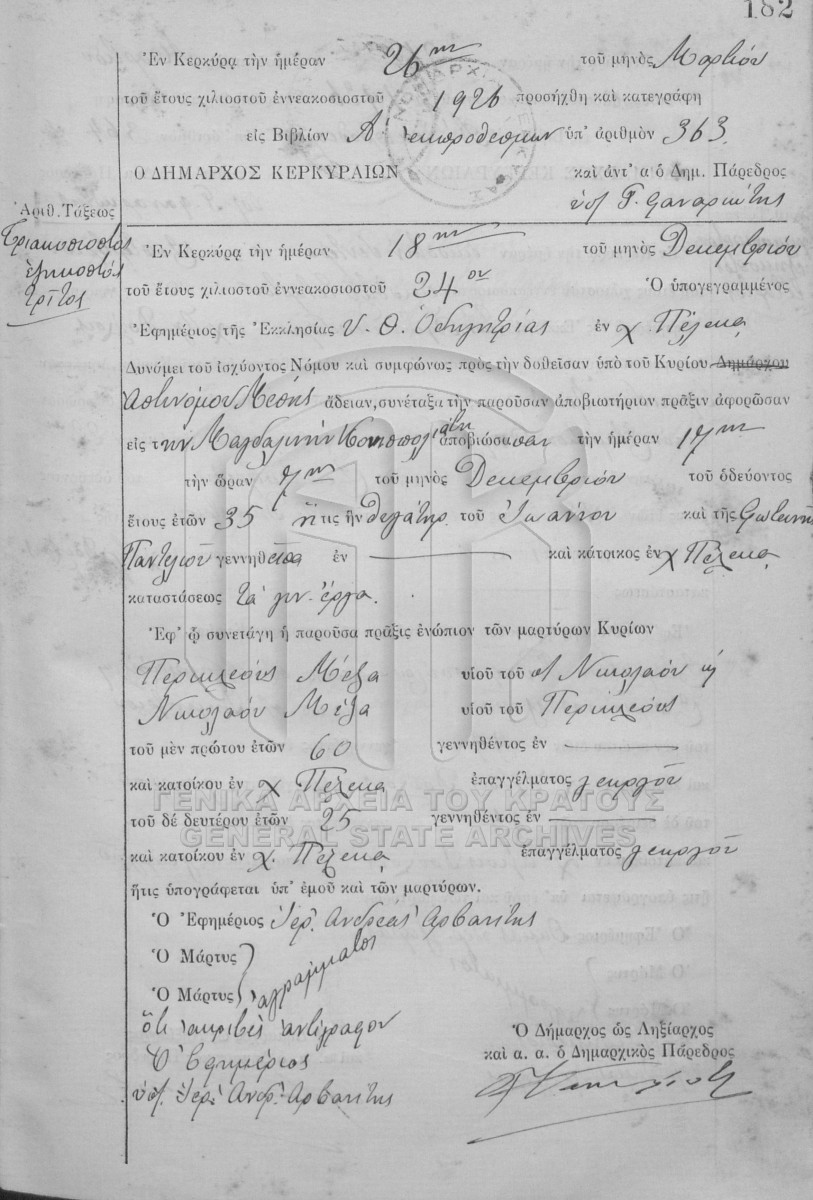 182
Ἐν Κερκύρᾳ τὴν ἡμέραν 26ην τοῦ μηνὸς Μαρτίου
τοῦ ἔτους χιλιοστοῦ ἐννεακοσιοστοῦ 1926 προσήχθη καὶ κατεγράφη
εἰς Βιβλίον Α' ἐκπροθέσμων ὑπ' ἀριθμὸν 363
Ο ΔΗΜΑΡΧΟΣ ΚΕΡΚΥΡΑΙΩΝ καὶ ἀντ' α ὁ Δημ. Πάρεδρος
Ἀριθ. Τάξεως
Τριακοσιοστὸς
ἑξηκοστός
τρίτος
Ἐν Κερκύρᾳ τὴν ἡμέραν 18ην τοῦ μηνὸς Δεκεμβρίου
τοῦ ἔτους χιλιοστοῦ ἐννεακοσιοστοῦ 24ου Ὁ ὑπογεγραμμένος
Ἐφημέριος τῆς Ἐκκλησίας Υ. Θ. Ὁδηγητρίας ἐν χ. Πέλεκα
Δυνάμει τοῦ ἰσχύοντος Νόμου καὶ συμφώνως πρὸς τὴν δοθεῖσαν ὑπὸ τοῦ Κυρίου Δημάρχου
Ἀστυνόμου Μέσης ἄδειαν, συνέταξα τὴν παροῦσαν ἀποβιωτήριον πρᾶξιν ἀφορῶσαν
εἰς την Μαγδαληνήν ἀποβιώσασαν τὴν ἡμέραν 17ην
τὴν ὥραν 7ην τοῦ μηνὸς Δεκεμβρίου τοῦ ὁδεύοντος
ἔτους ἐτῶν 35 ἥτις ἦν θυγάτηρ τοῦ Ἰωάννου καὶ τῆς Φωτεινῆς
Παντελιοῦ γεννηθεῖσα ἐν καὶ κάτοικος ἐν χ Πέλεκα
καταστάσεως τὰ γυν. ἔργα.
Ἐφ' ᾧ συνετάγη ἡ παροῦσα πρᾶξις ἐνώπιον τῶν μαρτύρων Κυρίων
Περικλέους Μέξα υἱοῦ τοῦ Νικολάου ἢ
Νικολάου Μέξα υἱοῦ τοῦ Περικλέους
τοῦ μὲν πρώτου ἐτῶν 60 γεννηθέντος ἐν
καὶ κατοίκου ἐν χ Πέλεκα ἐπαγγέλματος γεωργοῦ
ΓΕΝΙΚΑ ΑΡΧΕΙΑ ΤΟΥ ΚΡΑΤΟΥΣ
τοῦ δέ δευτέρου ἐτῶν 25 γεννηθέντος ἐν
GENERAL STATE ARCHIVES
καὶ κατοίκου ἐν χ. Πέλεκα ἐπαγγέλματος γεωργοῦ
ἥτις ὑπογράφεται ὑπ' ἐμοῦ καὶ τῶν μαρτύρων.
Ὁ Ἐφημέριος Ἱερ. Ἀνδρέας Ἀρβανίτης
Ὁ Μάρτυς
Ὁ Μάρτυς ἀγράμματοι
ὅτι ἀκριβὲς ἀντίγραφον
Ὁ Ἐφημέριος
ὑπ. Ἱερ. Ἀνδ. Ἀρβανίτης
Ὁ Δήμαρχος ὡς Ληξίαρχος
καὶ α. α. ὁ Δημαρχικὸς Πάρεδρος